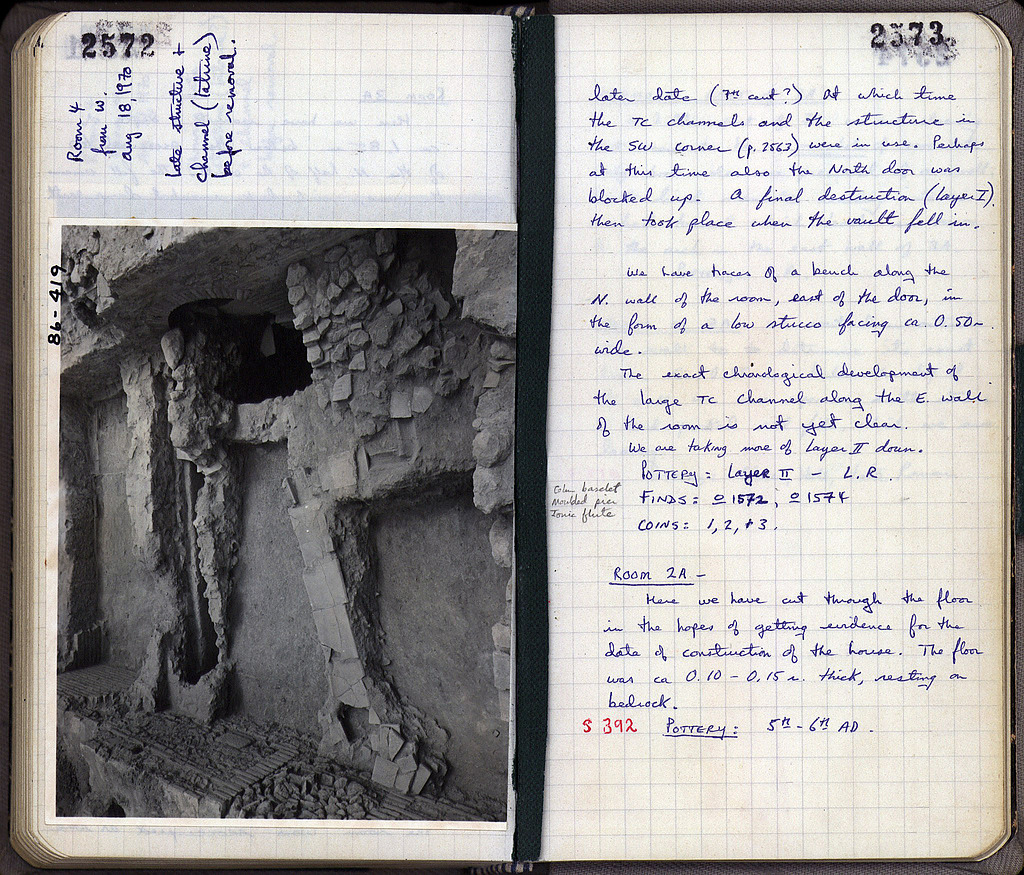 2572
Room 4
from W.
Aug 18, 1970
Late structure +
channel (latrine)
before removal.
86-419
2573
later date (7th cent?) at which time
the TC channels and the structure in
the SW corner (p. 2563) were in use. Perhaps
at this time also the North door was
blocked up. A final destruction (Layer I)
then took place when the vault fell in.
We have traces of a bench along the
N. wall of the room, east of the door, in
the form of a low stucco facing ca. 0.50m.
wide.
The exact chronological development of
the large TC channel along the E. wall
of the room is not yet clear.
We are taking more of Layer II down.
POTTERY: Layer II - L.R.
Glass
Moulded
Ionic flute
FINDS: o 1572; o 1574
COINS: 1, 2, + 3.
ROOM 2A -
Here we have cut through the floor
in the hopes of getting evidence for the
date of construction of the house. The floor
was ca 0.10 - 0.15 m. thick, resting on
bedrock.
S 392 POTTERY: 5th - 6th AD.